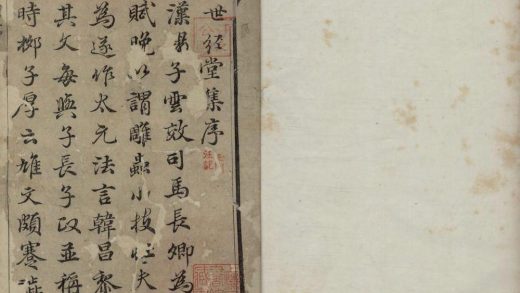 世經堂集序
漢揚子雲效司馬長卿為
賦晚以謂雕蟲小技壯夫
為遂作太元法言韓昌黎
其文每與子長子政並稱
時柳子厚云雄文頗蹇澁